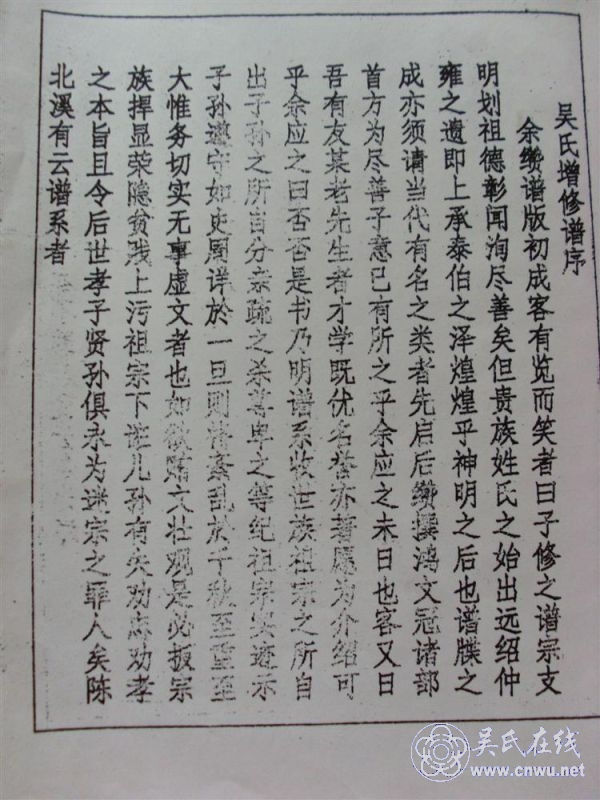 吴氏增修谱序
余缵谱版初成客有览而笑者曰子修之谱宗支
明划祖德彰闻洵尽善矣但贵族姓氏之始出远绍仲
雍之遗即上承泰伯之泽煌煌乎神明之后也谱牒之
成亦须请当代有名之类者先启后缵撰鸿文冠诸部
首方为尽善子意已有所之乎余应之未曰也客又曰
吾有友某老先生者才学既优名誉亦著愿为介绍可
乎余应之曰否否是书乃明谱系收世族祖宗之所自
出子孙之所自分亲疏之杀尊卑之等纪祖宗实迹示
子孙遵守如史周详於一旦则情紊乱於千秋至重至
大惟务切实无事虚文者也如徵赂六壮观是必扳宗
族捍显荣隐贫残上污祖宗下诳儿孙有失劝忠劝孝
之本旨且令后世孝子贤孙俱永为迷宗之罪人矣陈
北溪有云谱系者
吴氏在线
www.cnwu.net